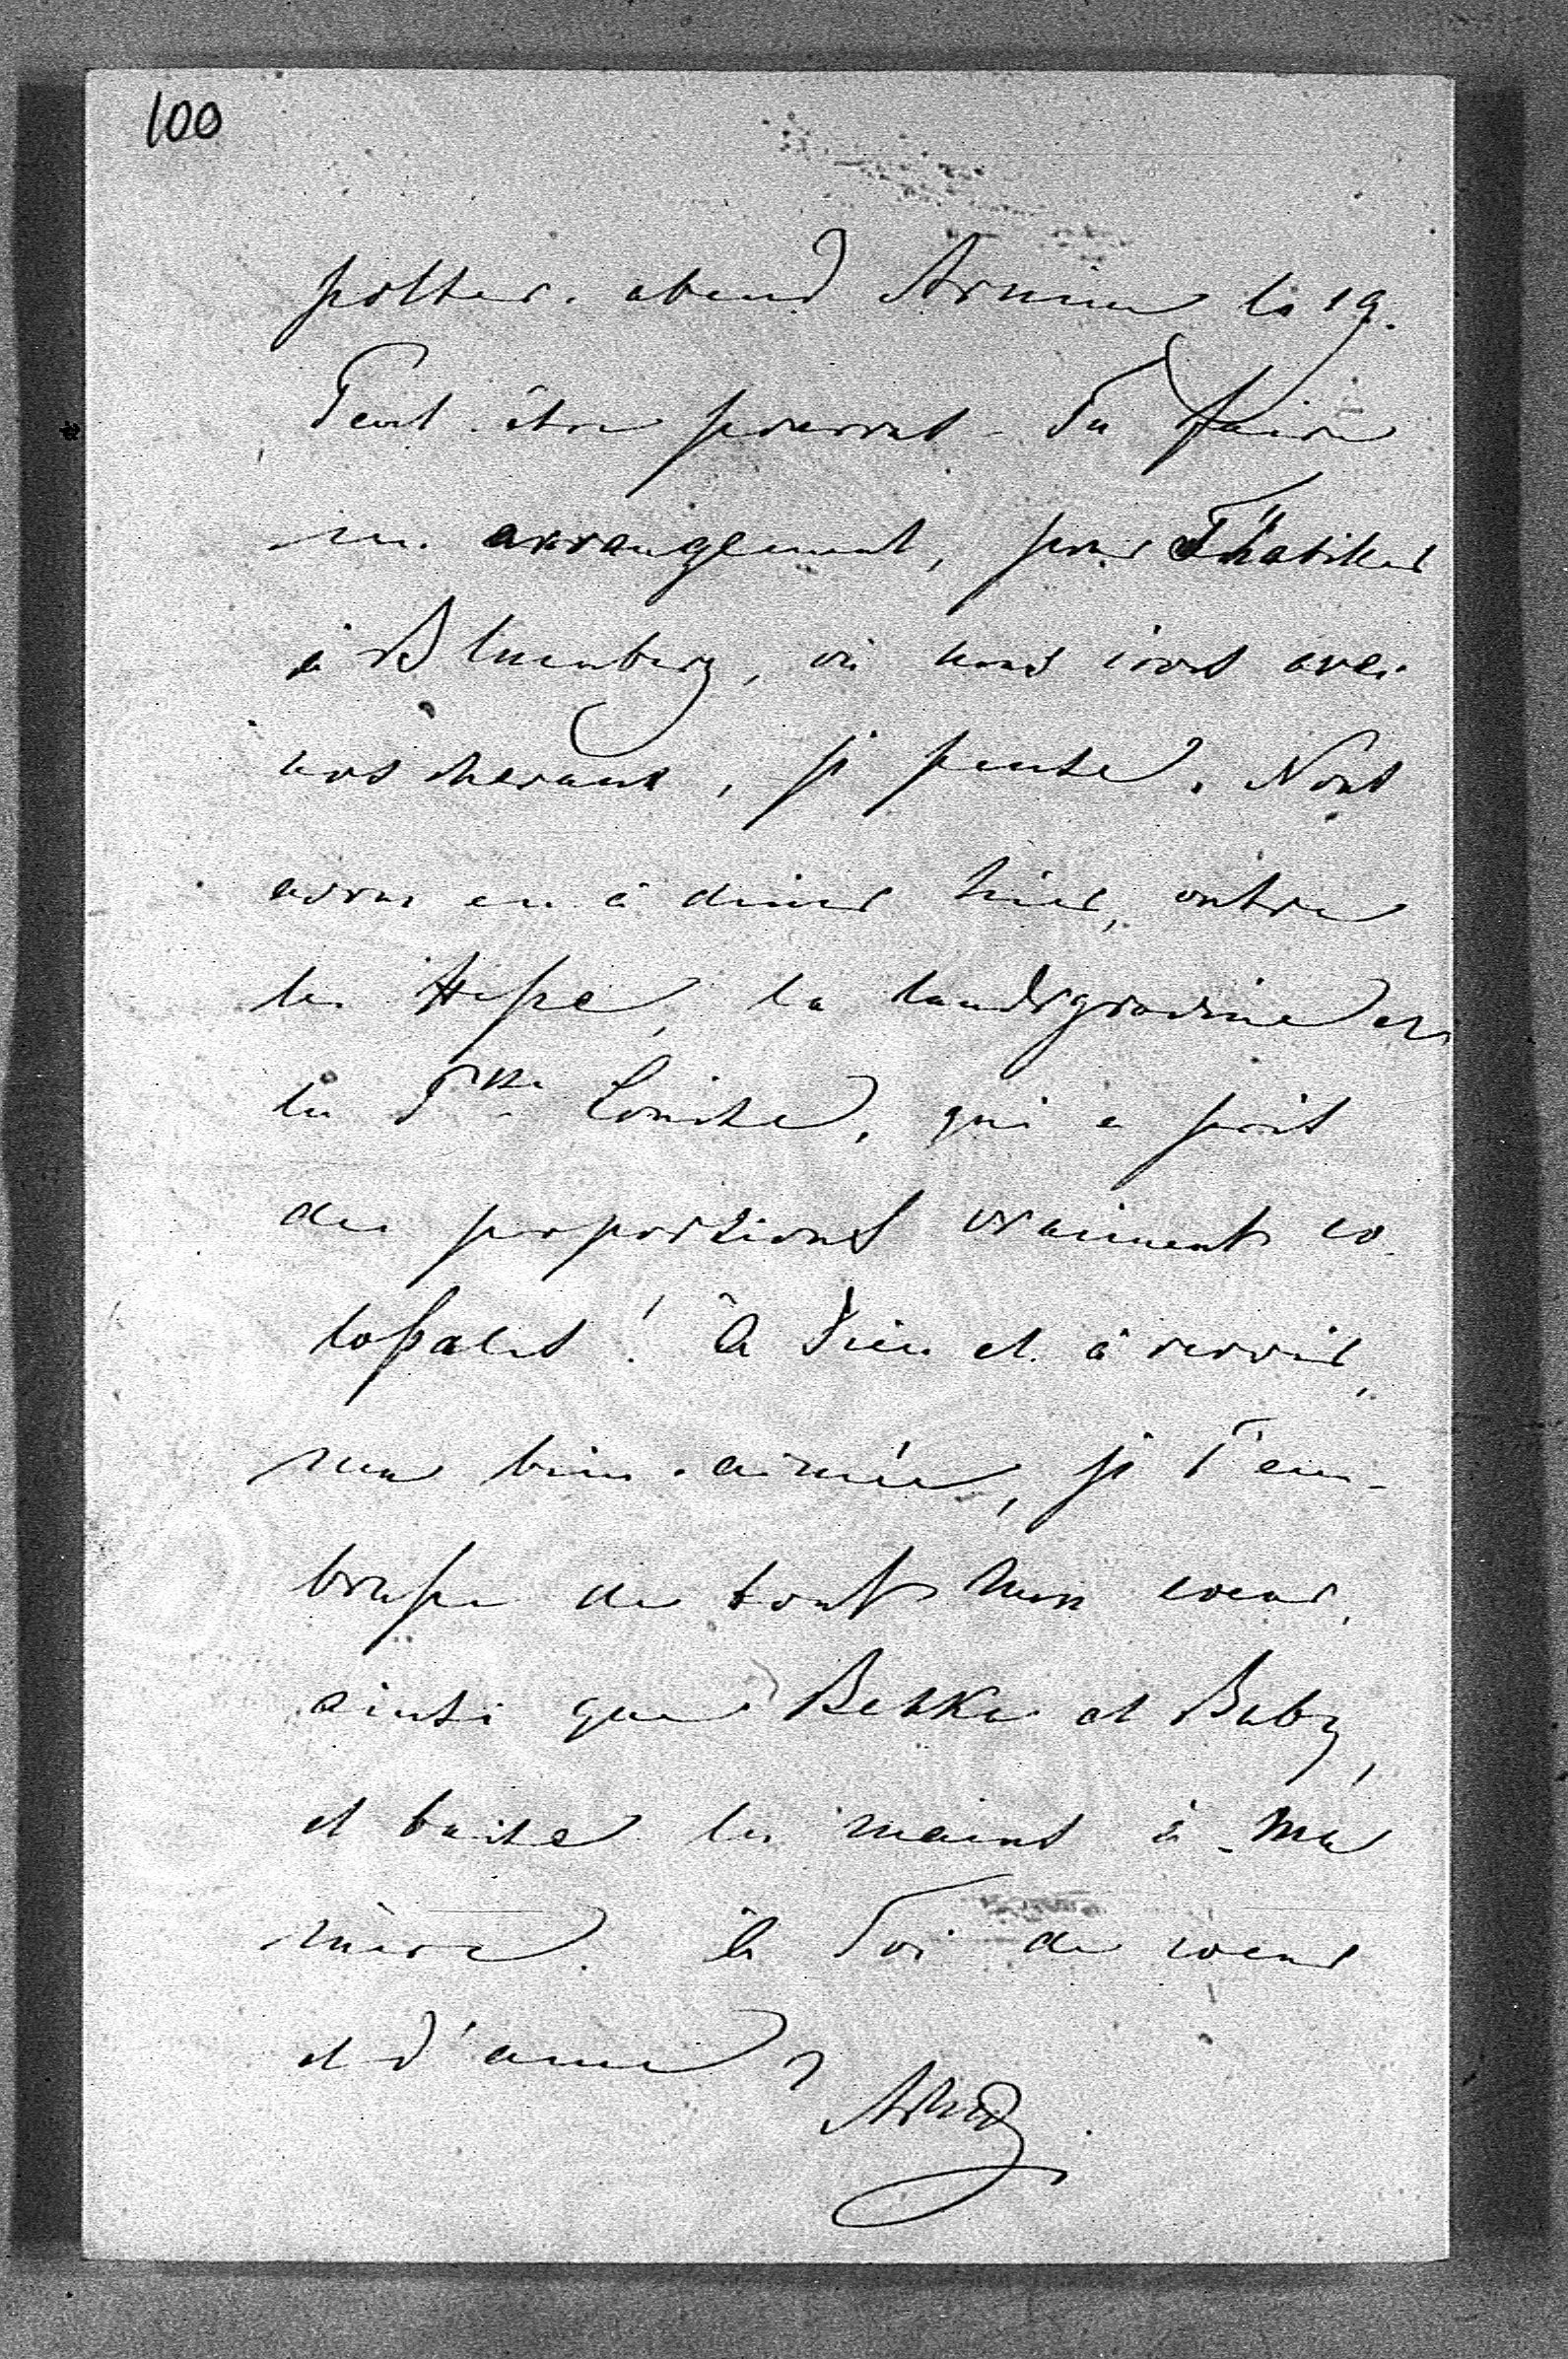 100
polter. abend Arnim le 19.
Peut-être pourras-Tu faire
un arrangement, pour T'habiller
à Blumberg, où nous irons avec
nos chevaux, je pense. Nous
avons eu à diner hier, outre
les Hesse, la landgravine et
la Psse Louise, qui a pris
des proportions vraiment co-
lossales! à Dieu et à revoir,
ma bien-aimée, je T'em-
brasse de tout mon coeur,
ainsi que Bekka et Baby,
et baise les mains à ma
mère. à Toi de coeur
et d'ame